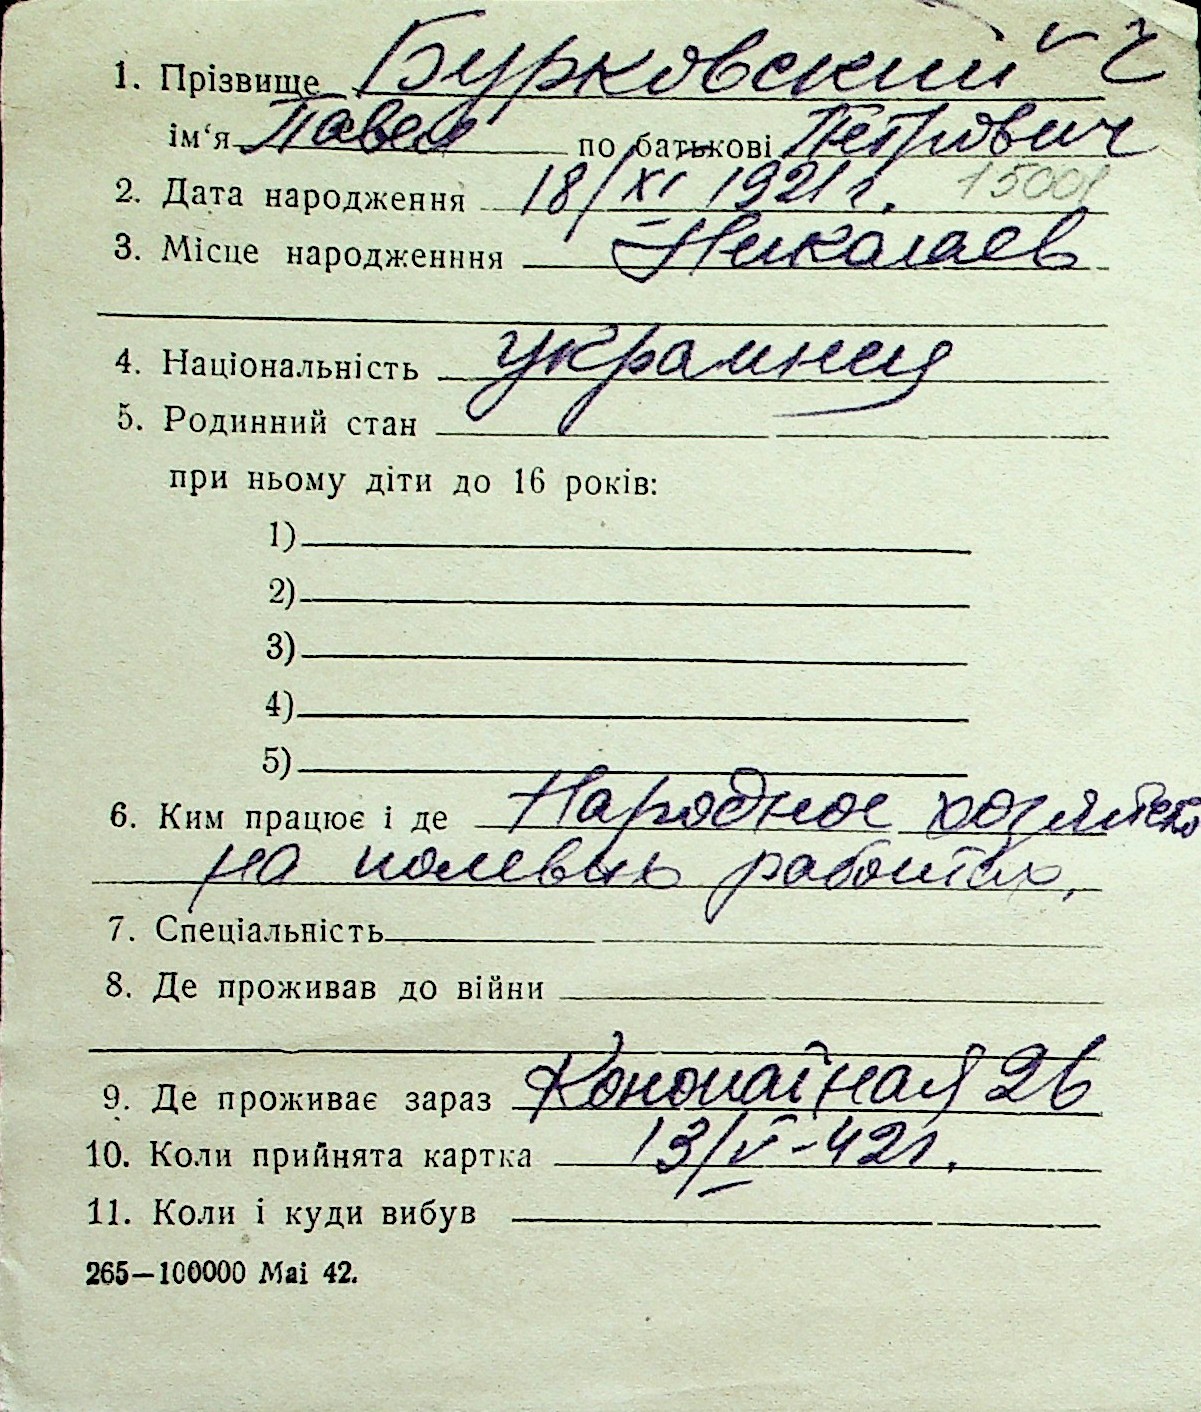 1. Прізвище Бурковский
ім‘я Павел по батькові Петрович
2. Дата народження 18/XI 1921 г. 15001
3. Місце народженння Николаев
4. Національність украинец
5. Родинний стан
при ньому діти до 16 років:
1)
2)
3)
4)
5)
6. Ким працює і де Народное хозяйство
на полевых работах,
7. Спеціальність
8. Де проживав до війни
9. Де проживає зараз 26
10. Коли прийнята картка 13/V-42 г.
11. Коли і куди вибув
265—100000 Mai 42.